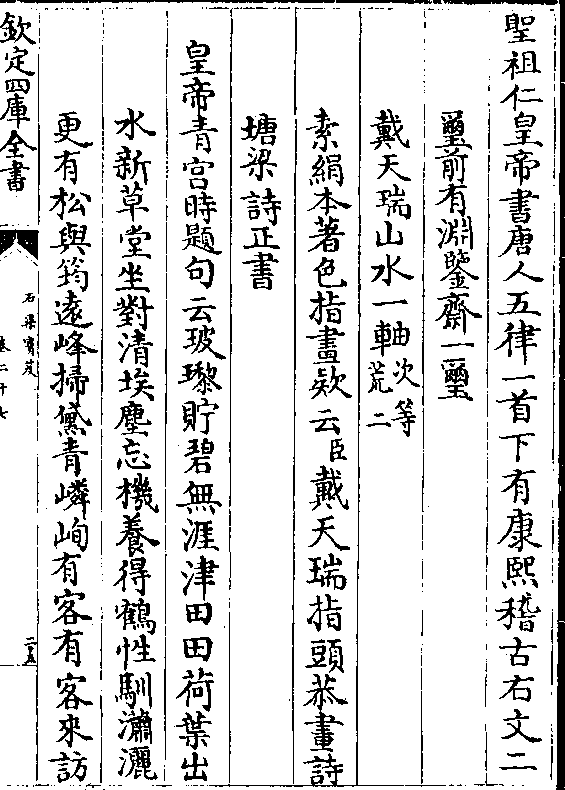 聖祖仁皇帝書唐人五律一首下有康熙稽古右文二
璽前有淵鑒齋一璽
戴天瑞山水一軸次等荒二
素絹本著色指畫款云臣戴天瑞指頭恭畫詩
塘梁詩正書
皇帝青宮時題句云玻瓈貯碧無涯津田田荷葉出
水新草堂坐對清埃塵忘機養得鶴性馴瀟灑
更有松與筠遠峰掃黛青嶙峋有客有客來訪
欽定四庫全書
石渠寶笈
卷二十七
二五